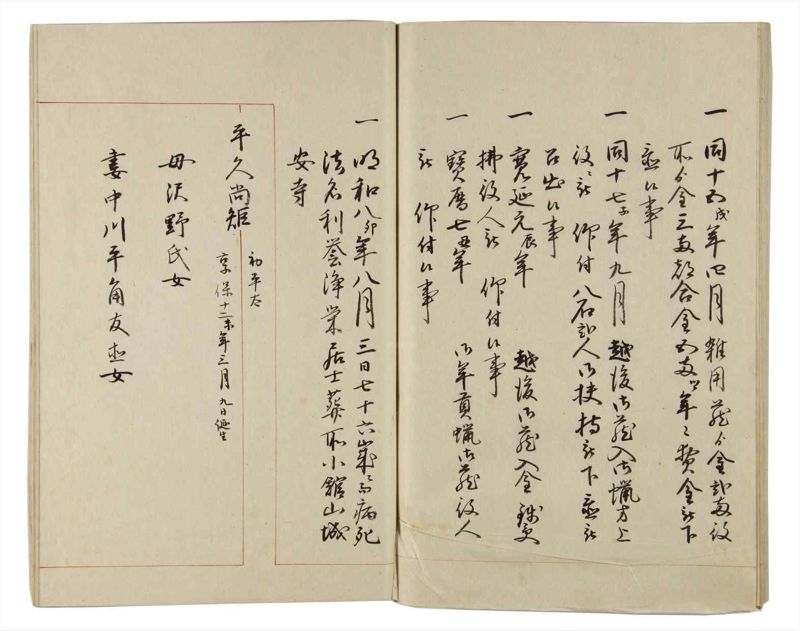 一 同十五戌年四月 雑用蔵ゟ金弐両被
下置候事
一 同十七子年九月 越後御蔵入御蝋方上
役被 仰付 八石弐人御扶持被下置被
召出候事
一 寛延元辰年 越後御蔵入金銭受
拂役人被 仰付候事
一 寶暦七丑年 御年貢蝋御蔵役人
被 仰付候事
一 明和八卯年八月三日七十六歳ニ而病死
法名利誉浄栄居士葬所小舘山城
安寺
平久尚矩
初平太
享保十二未年三月九日誕生
母沢野氏女
妻中川平角友 女